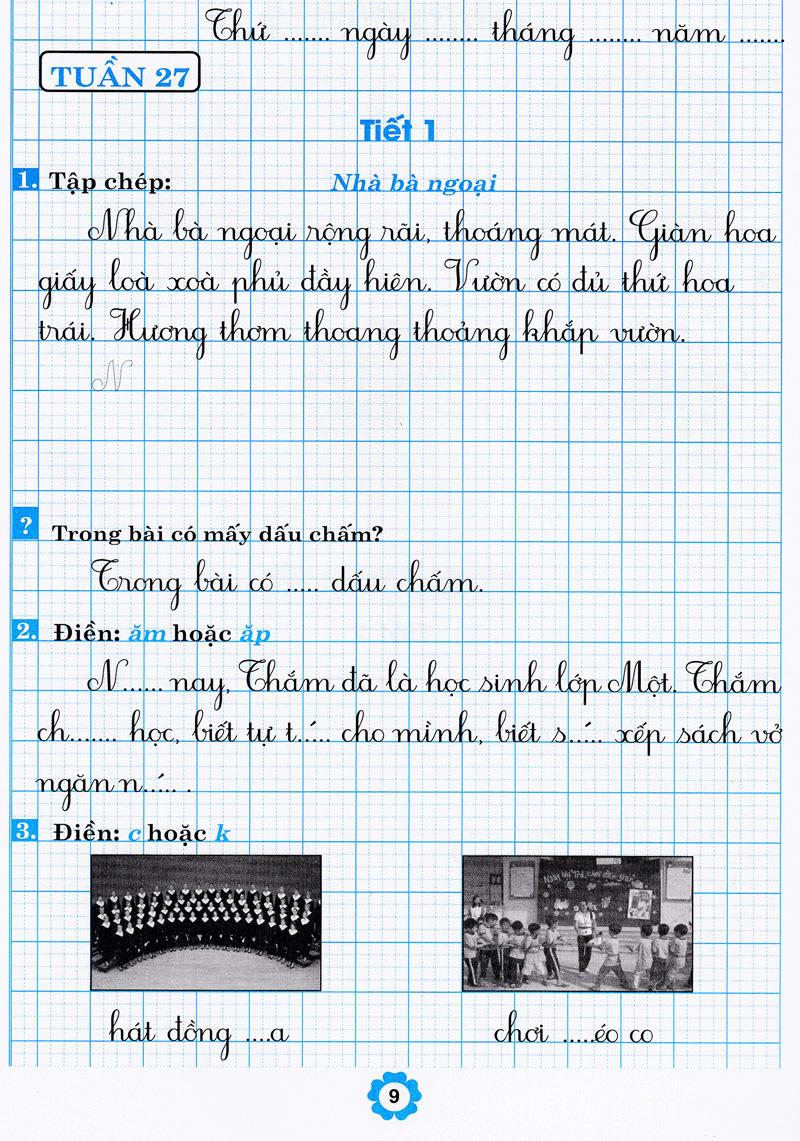 Thứ ....... ngày ........ tháng ........ năm .......
TUẦN 27
Tiết 1
1. Tập chép: Nhà bà ngoại
Nhà bà ngoại rộng rãi, thoáng mát. Giàn hoa
giấy loà xoà phủ đầy hiên. Vườn có đủ thứ hoa
trái. Hương thơm thoang thoảng khắp vườn.
N
? Trong bài có mấy dấu chấm?
Trong bài có ..... dấu chấm.
2. Điền: ăm hoặc ăp
N...... nay, Thắm đã là học sinh lớp Một. Thắm
ch....... học, biết tự t..´.. cho mình, biết s..´.. xếp sách vở
ngăn n..´.. .
3. Điền: c hoặc k
hát đồng ....a
chơi .....éo co
9